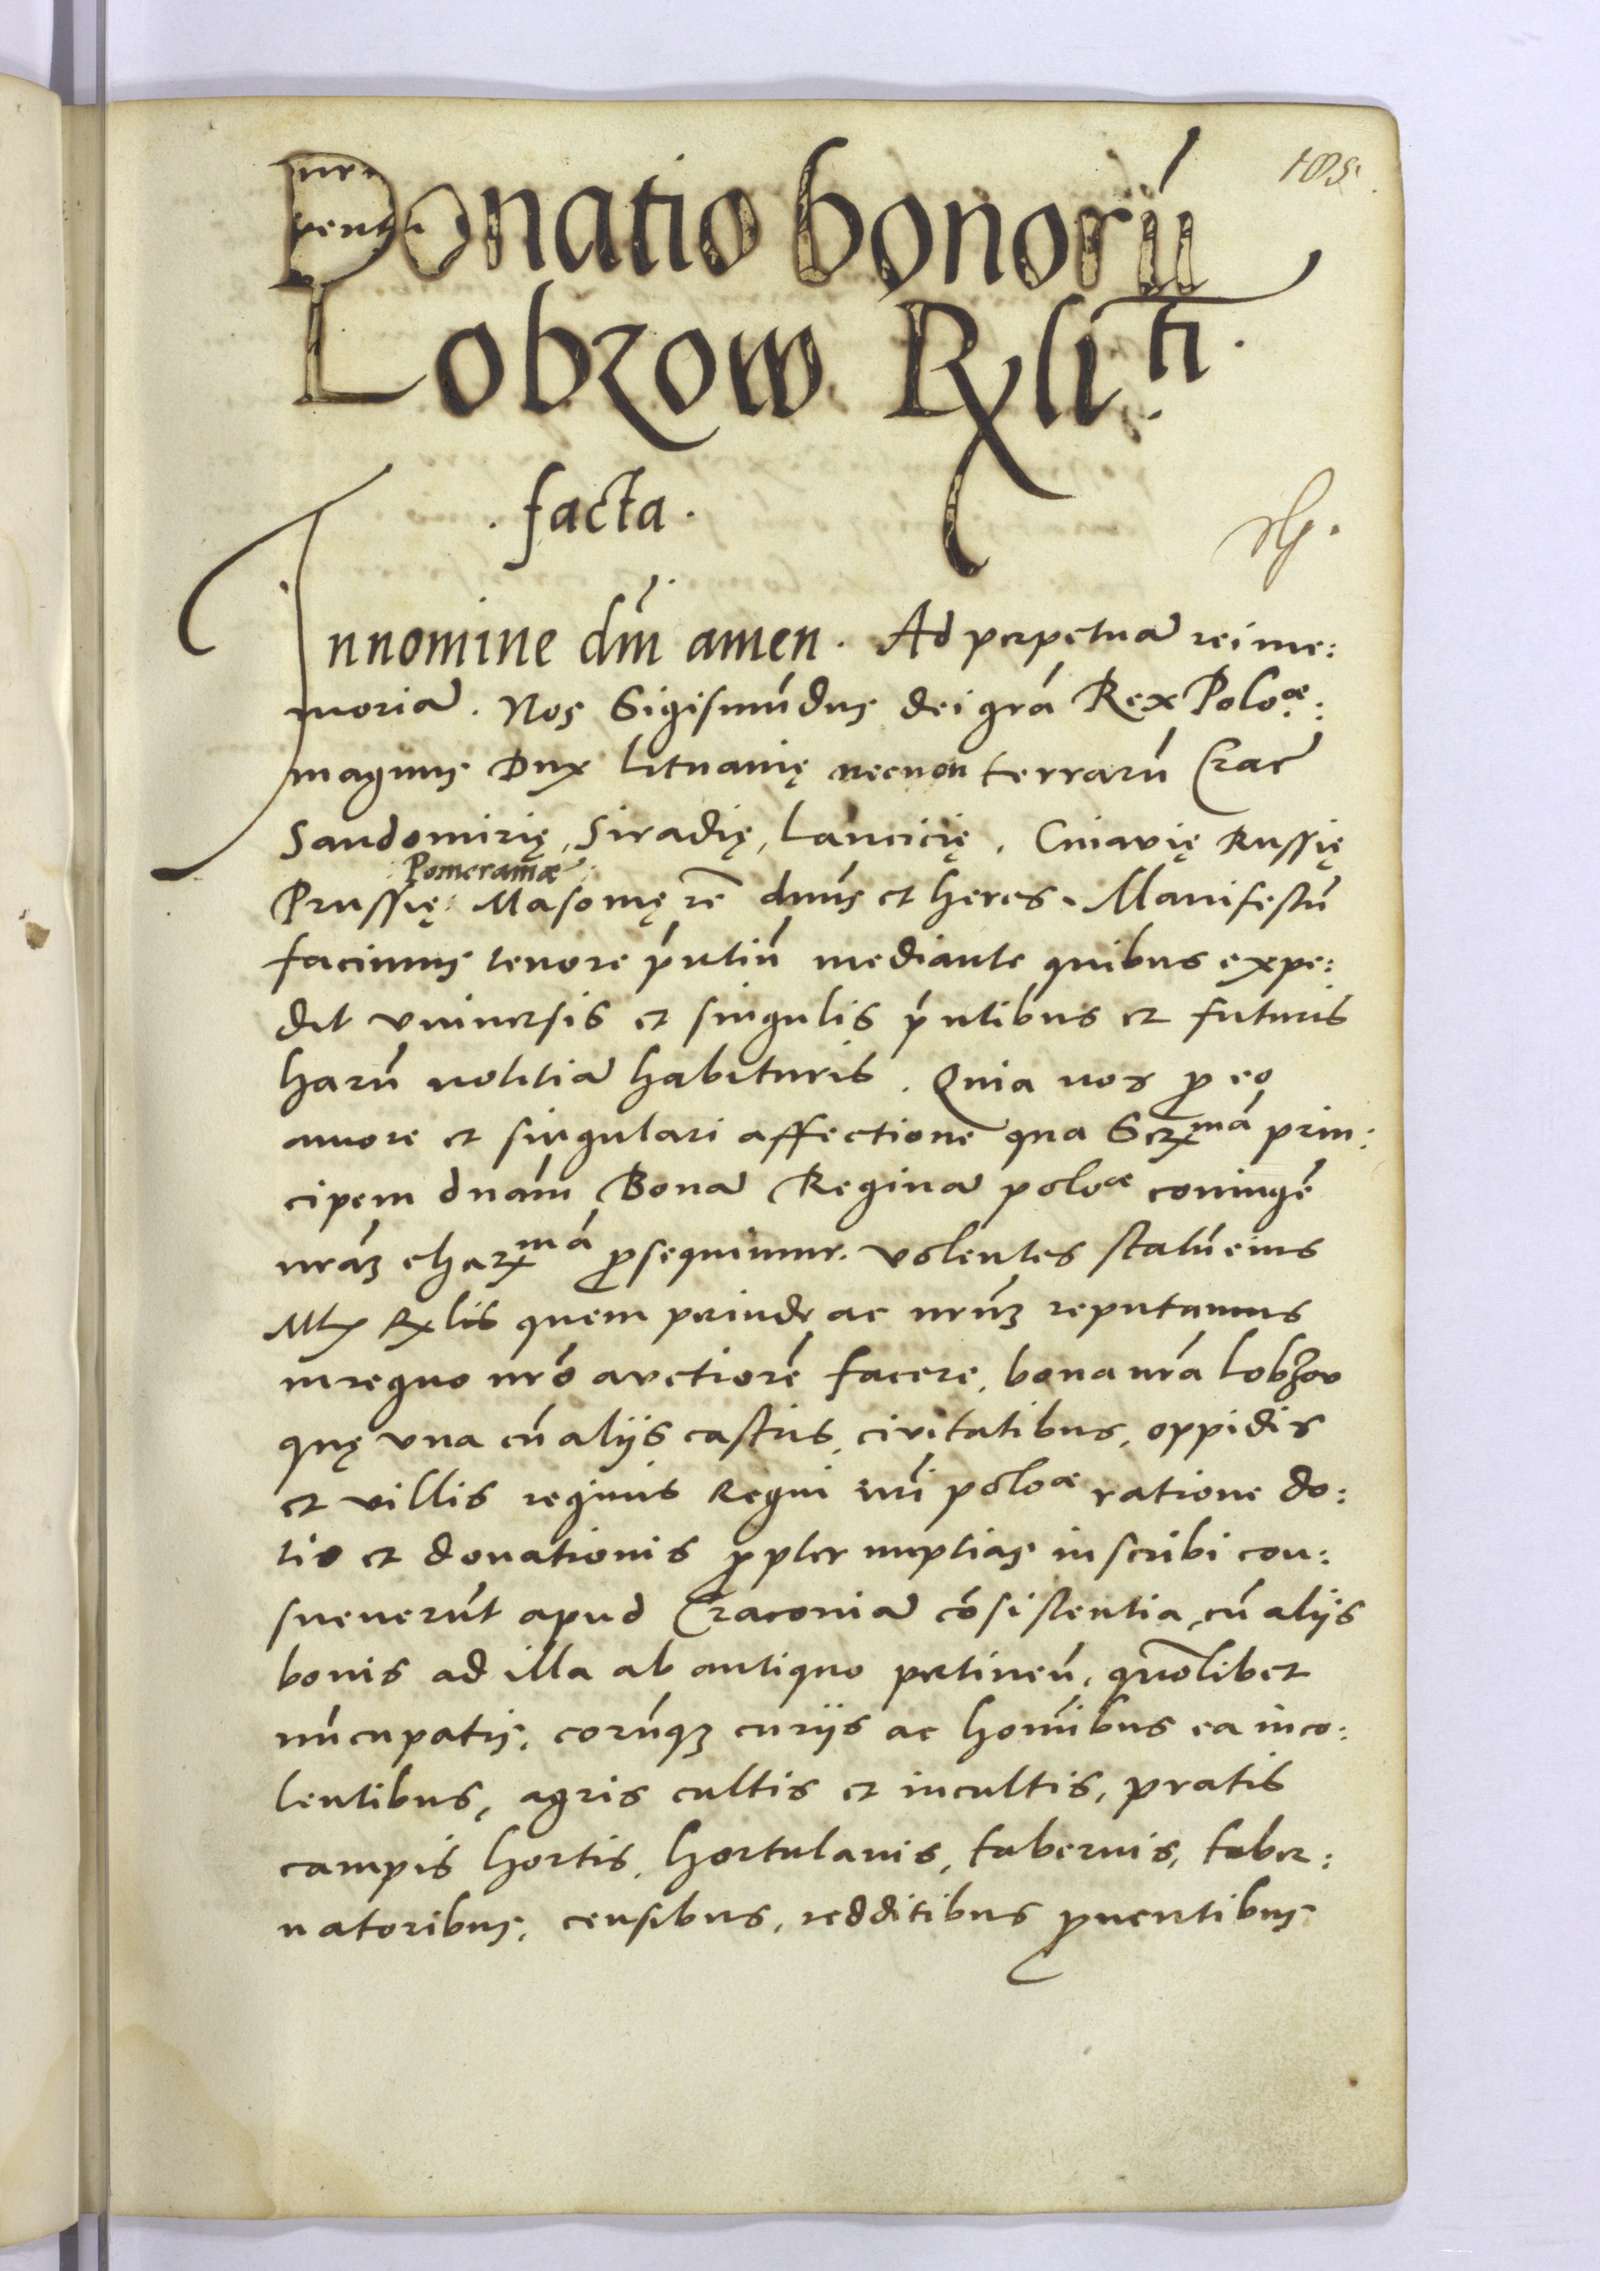 Donatio bonorú
Lobzow Rxli ti.
. facta .
In nomine dm̃i amen . Ad perpetuā rei me:
moriā . Nos Sigismúdus dei grá Rex Poloæ:
magnus Dux Lituanię necnon terrarú Crac
Sandomirię, Siradię, Lancicię, Cuiavię Russię
: Pomeraniæ :
Prussię: Masovię rē dnús et heres. Manifestú
facimus tenore pńtiú mediante quibus expe:
dit universis et singulis pńtibus et futuris
harú notitiā habituris . Quia nos ꝓ eo
amore et singulari affectione qua Serxmá prin:
cipem dnám Bonā Reginā poloæ coniugē
nrāȝ charxmá ꝓsequimur. volentes statú eius
Mtx Rxlis quem perinde ac nrúȝ reputamus
in regno nró auctiorē facere, bona nrá Lobzow
quę vna cú aliis castris, civitatibus, oppidis
et villis reginis Regni nrí poloæ ratione do:
tis et donationis ꝓpter nuptias inscribi con:
sueverút apud Cracoviā cósistentia, cú aliis
bonis ad illa ab antiquo pertineñ, quolibet
núcupatis, eorúqȝ curiis ac homíbus ea inco:
lentibus, agris cultis et incultis, pratis
campis hortis, hortulanis, tabernis, taber:
natoribus, censibus, redditibus ꝓventibus